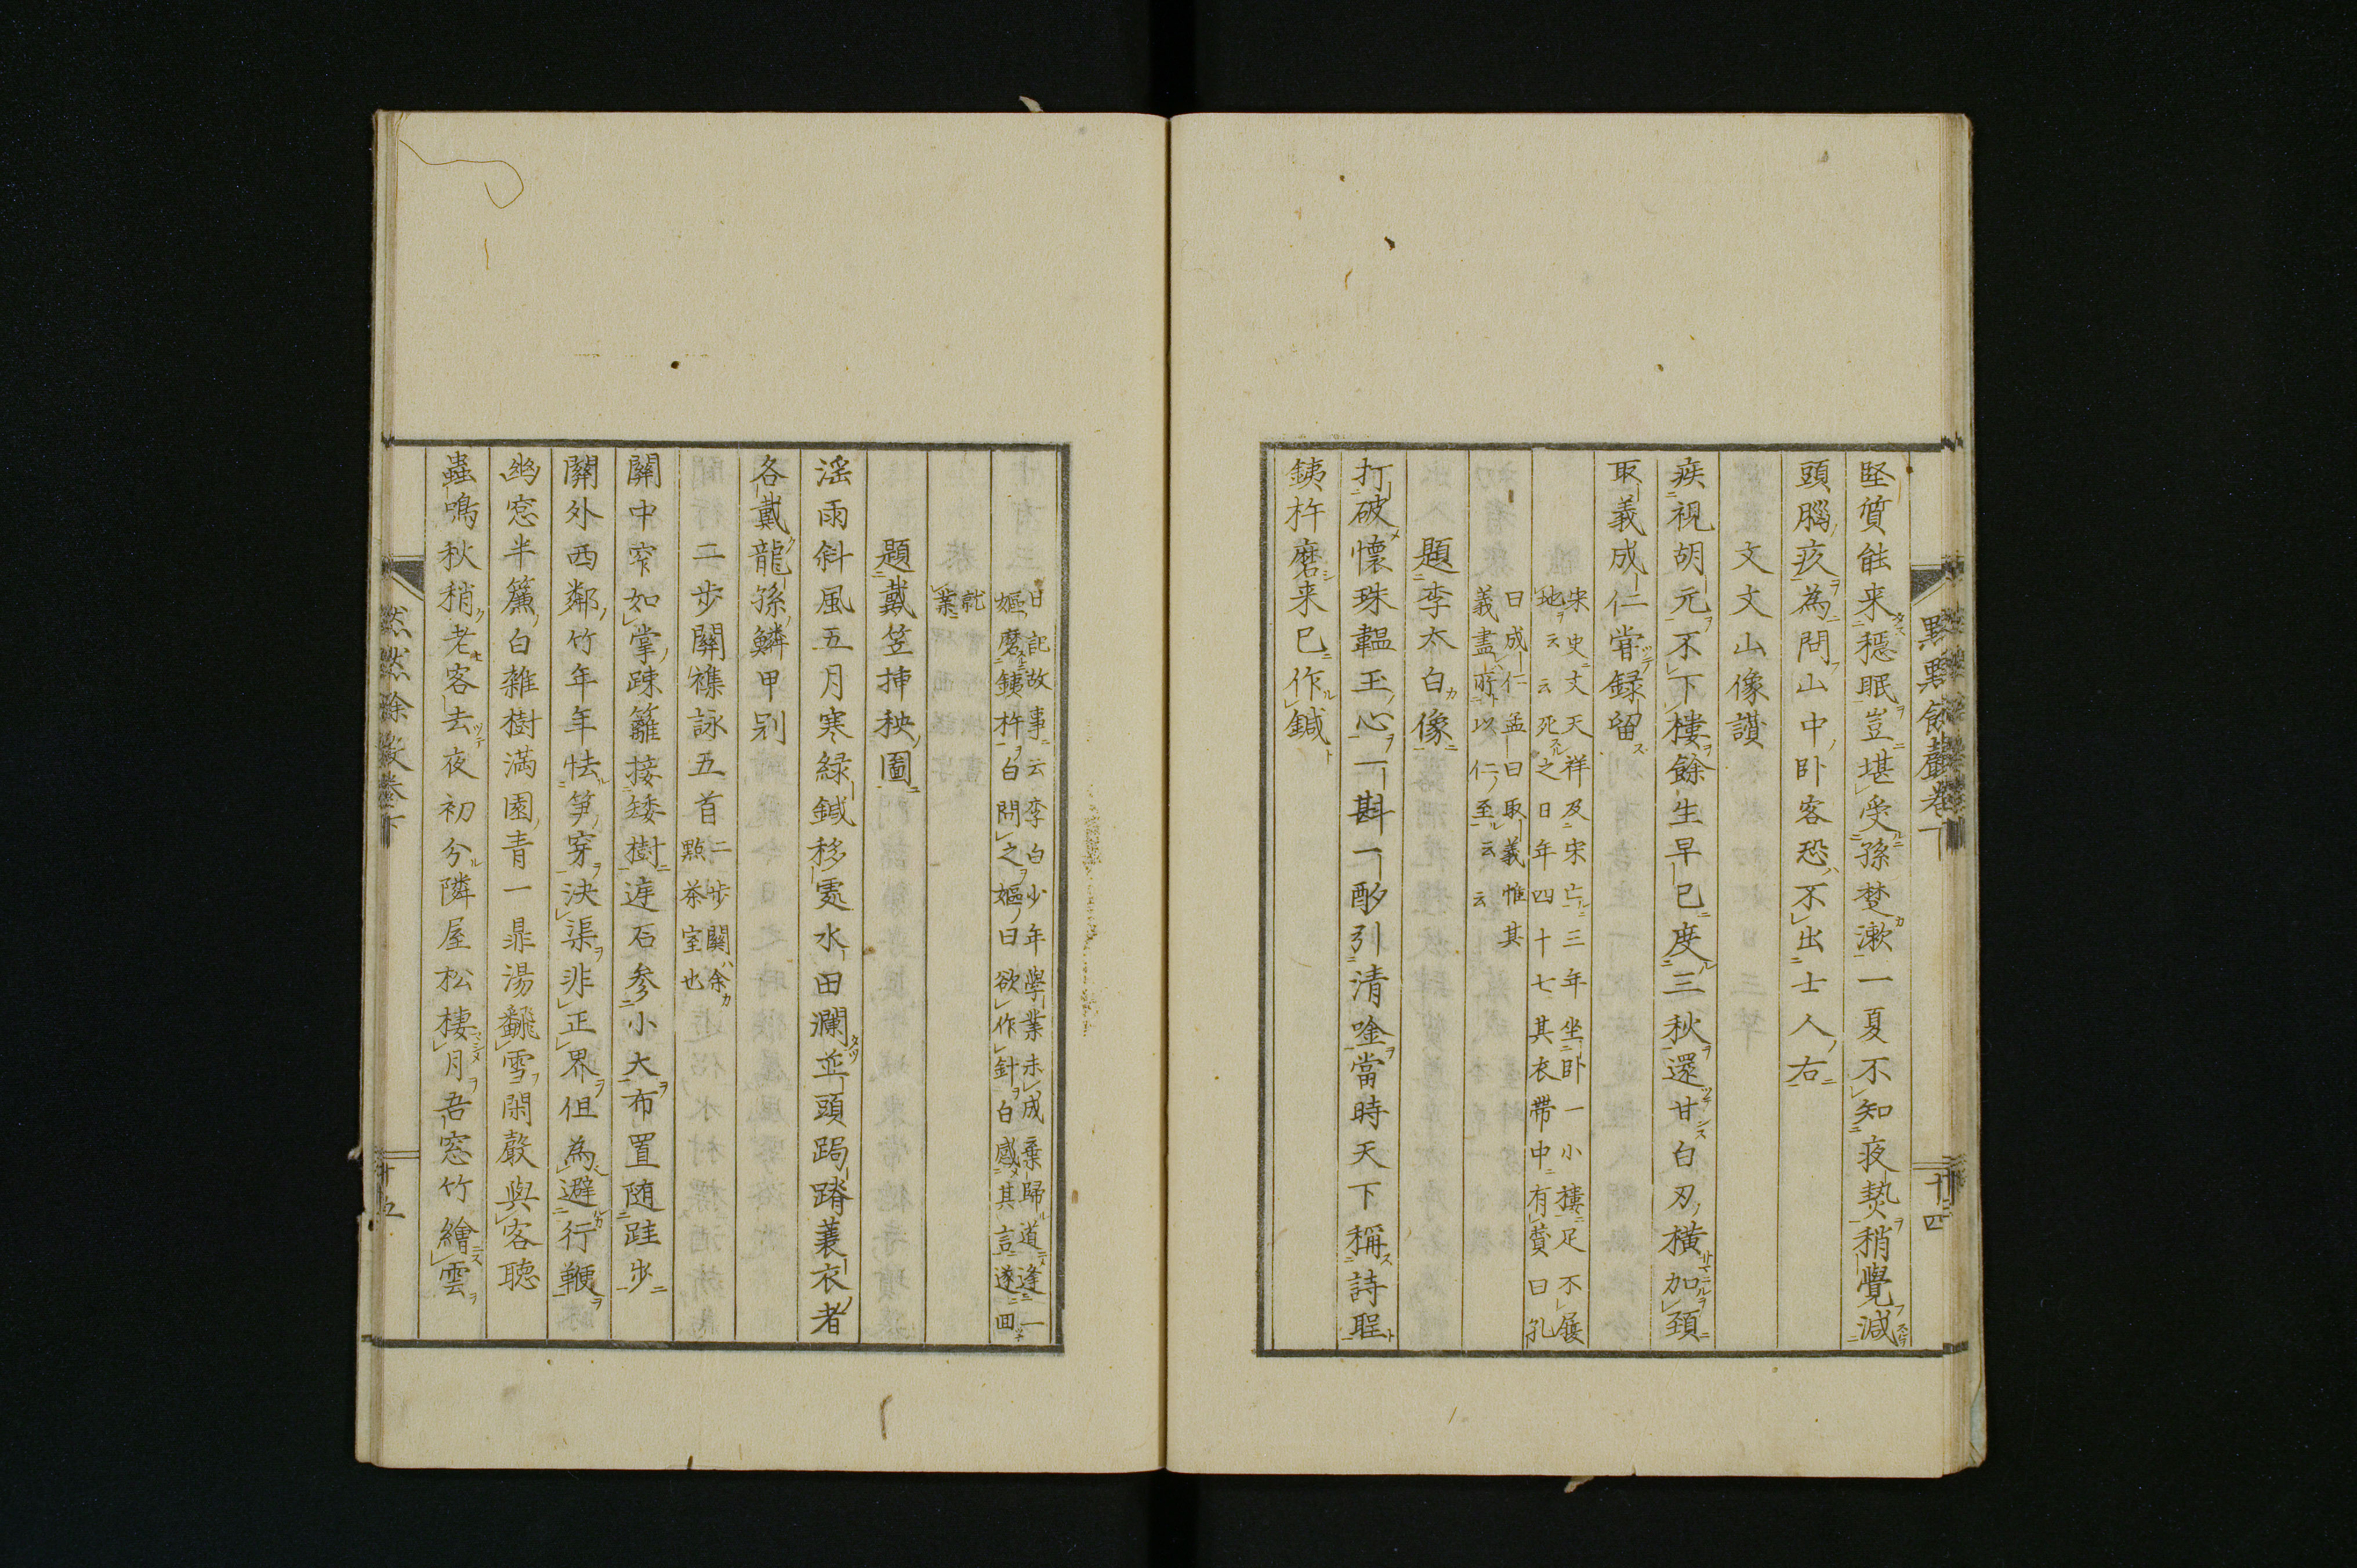 堅質能来穩眠豈堪受孫楚漱一夏不知夜熱稍覺減
頭腦疾為問山中臥客恐不出士人右
文文山像讃
疾視胡元不下樓餘生早已度三秋還甘白刃横加頚
取義成仁嘗録留
宋史文天祥及宋亡三年坐卧一小樓足不履
地云云死之日年四十七其衣帶中有賛曰孔
曰成仁孟曰取義惟其
義盡所以仁至云云
題李太白像
打破懷珠韞玉心一斟一酌引清唫當時天下稱詩聖
銕杵磨来已作鍼
日記故事云李白少年學業未成棄歸道逢一
嫗磨銕杵白問之嫗曰欲作針白感其言遂回
就
業
題戴笠挿秧圖
滛雨斜風五月寒緑鍼移處水田瀾並頭跼蹐蓑衣者
各戴龍孫鱗甲别
二歩關襍詠五首
二歩關余
點茶室也
關中窄如掌踈籬接矮樹遶石参小大布置随跬歩
關外西鄰竹年年怯笋穿決渠非正界但為避行鞭
幽窓半簾白雜樹滿園青一鼎湯飜雪閑聲與客聴
蟲鳴秋稍老客去夜初分隣屋松棲月吾窓竹繪雲
十四
十五